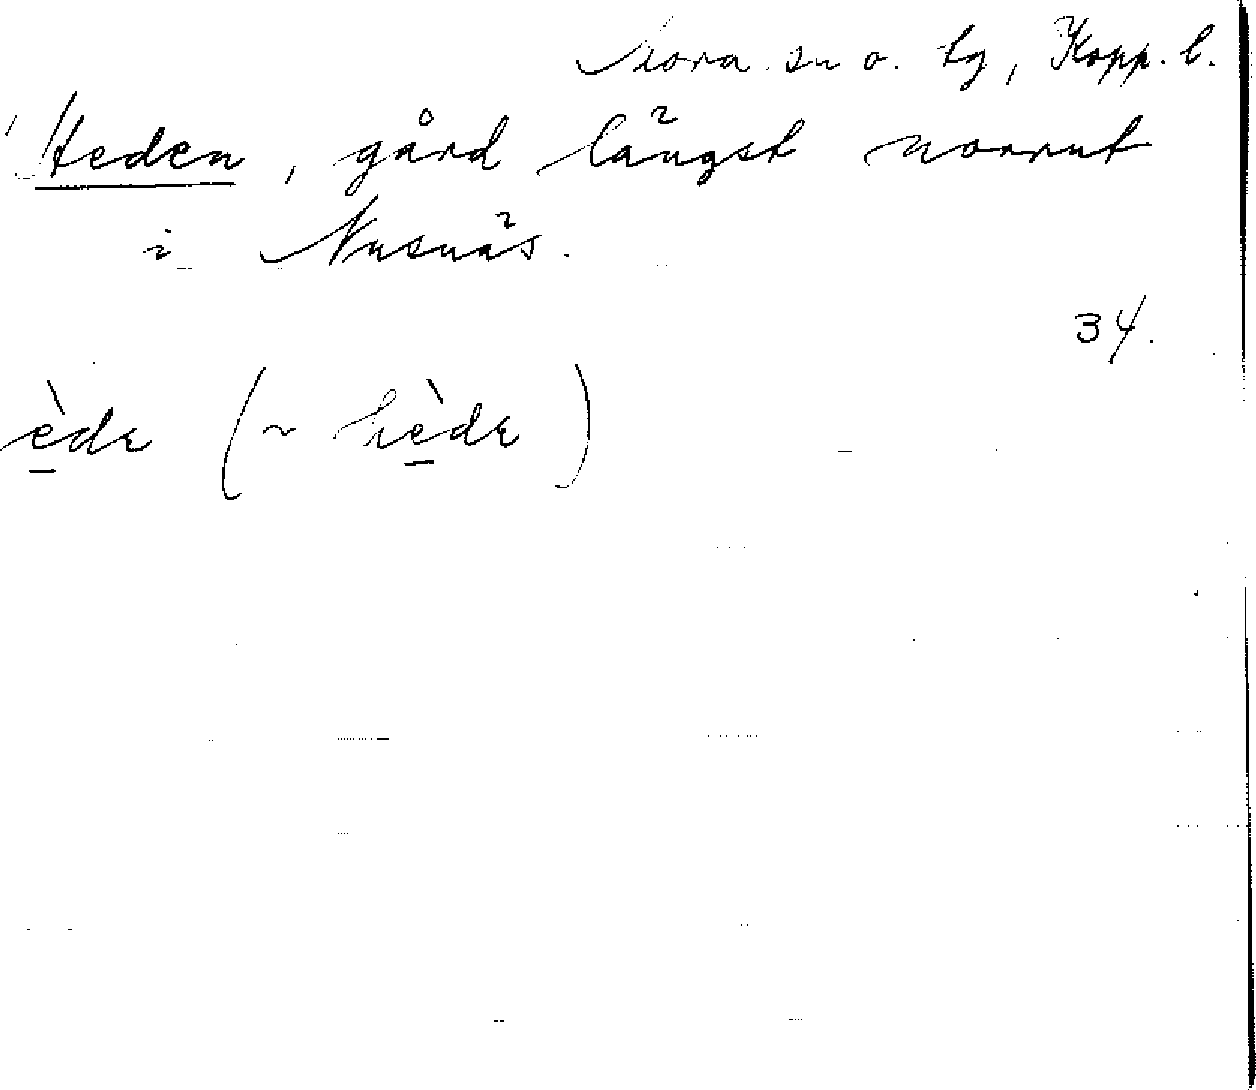 Mora sn o. tg, Kopp. l.
Heden, gård längst norrut
i Nusnäs.
34.
ède (~ hède)